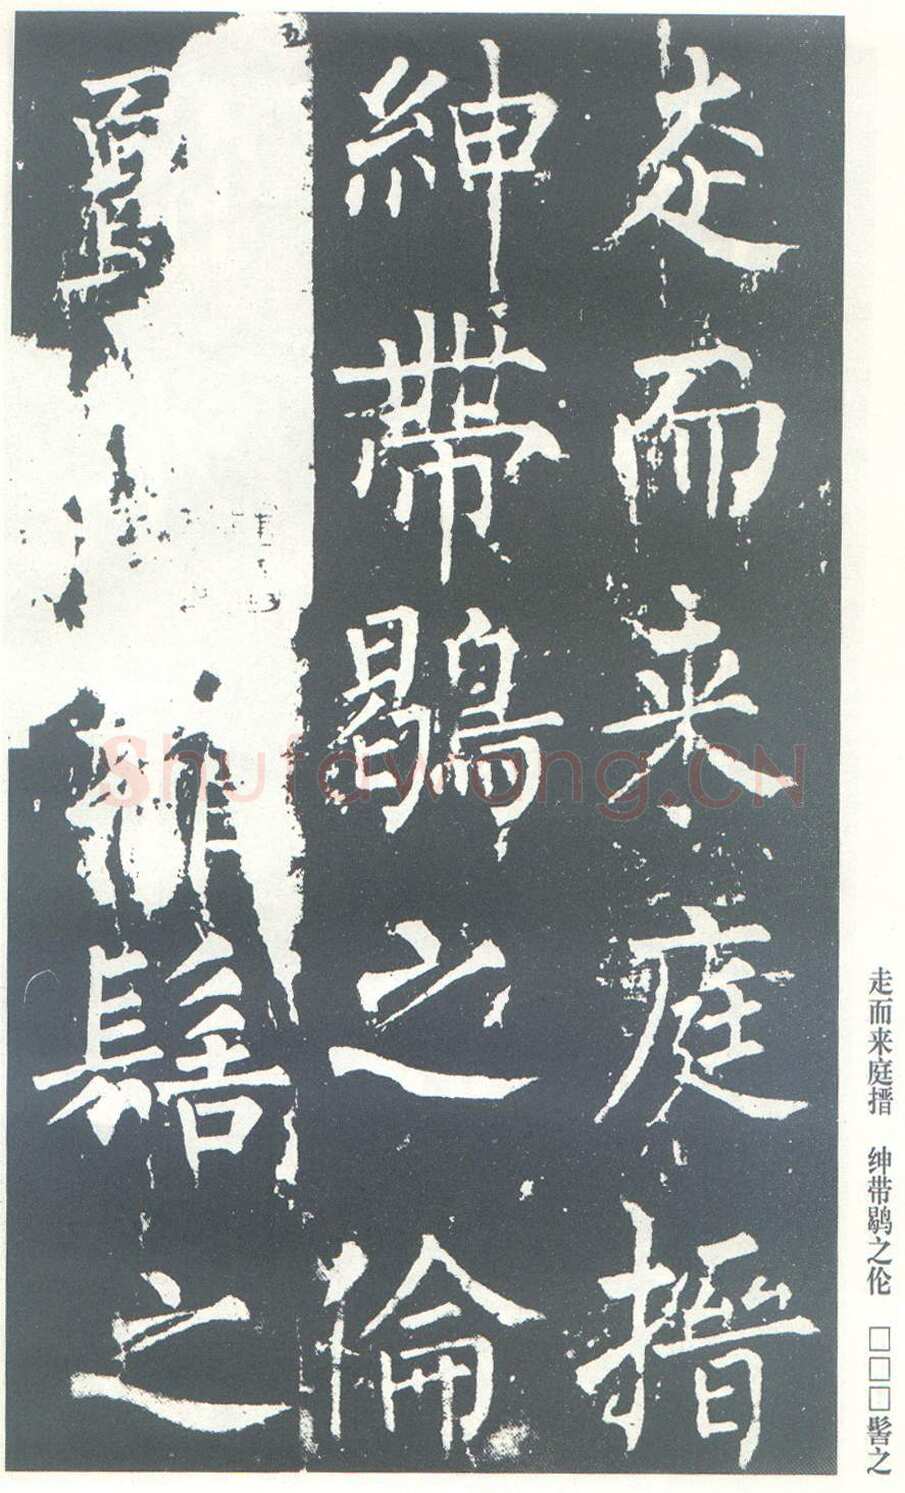 走而来庭搢
紳帶鶡之倫
髻之
五
走而来庭搢　绅带鹖之伦　□□□髻之
Shufawang.CN